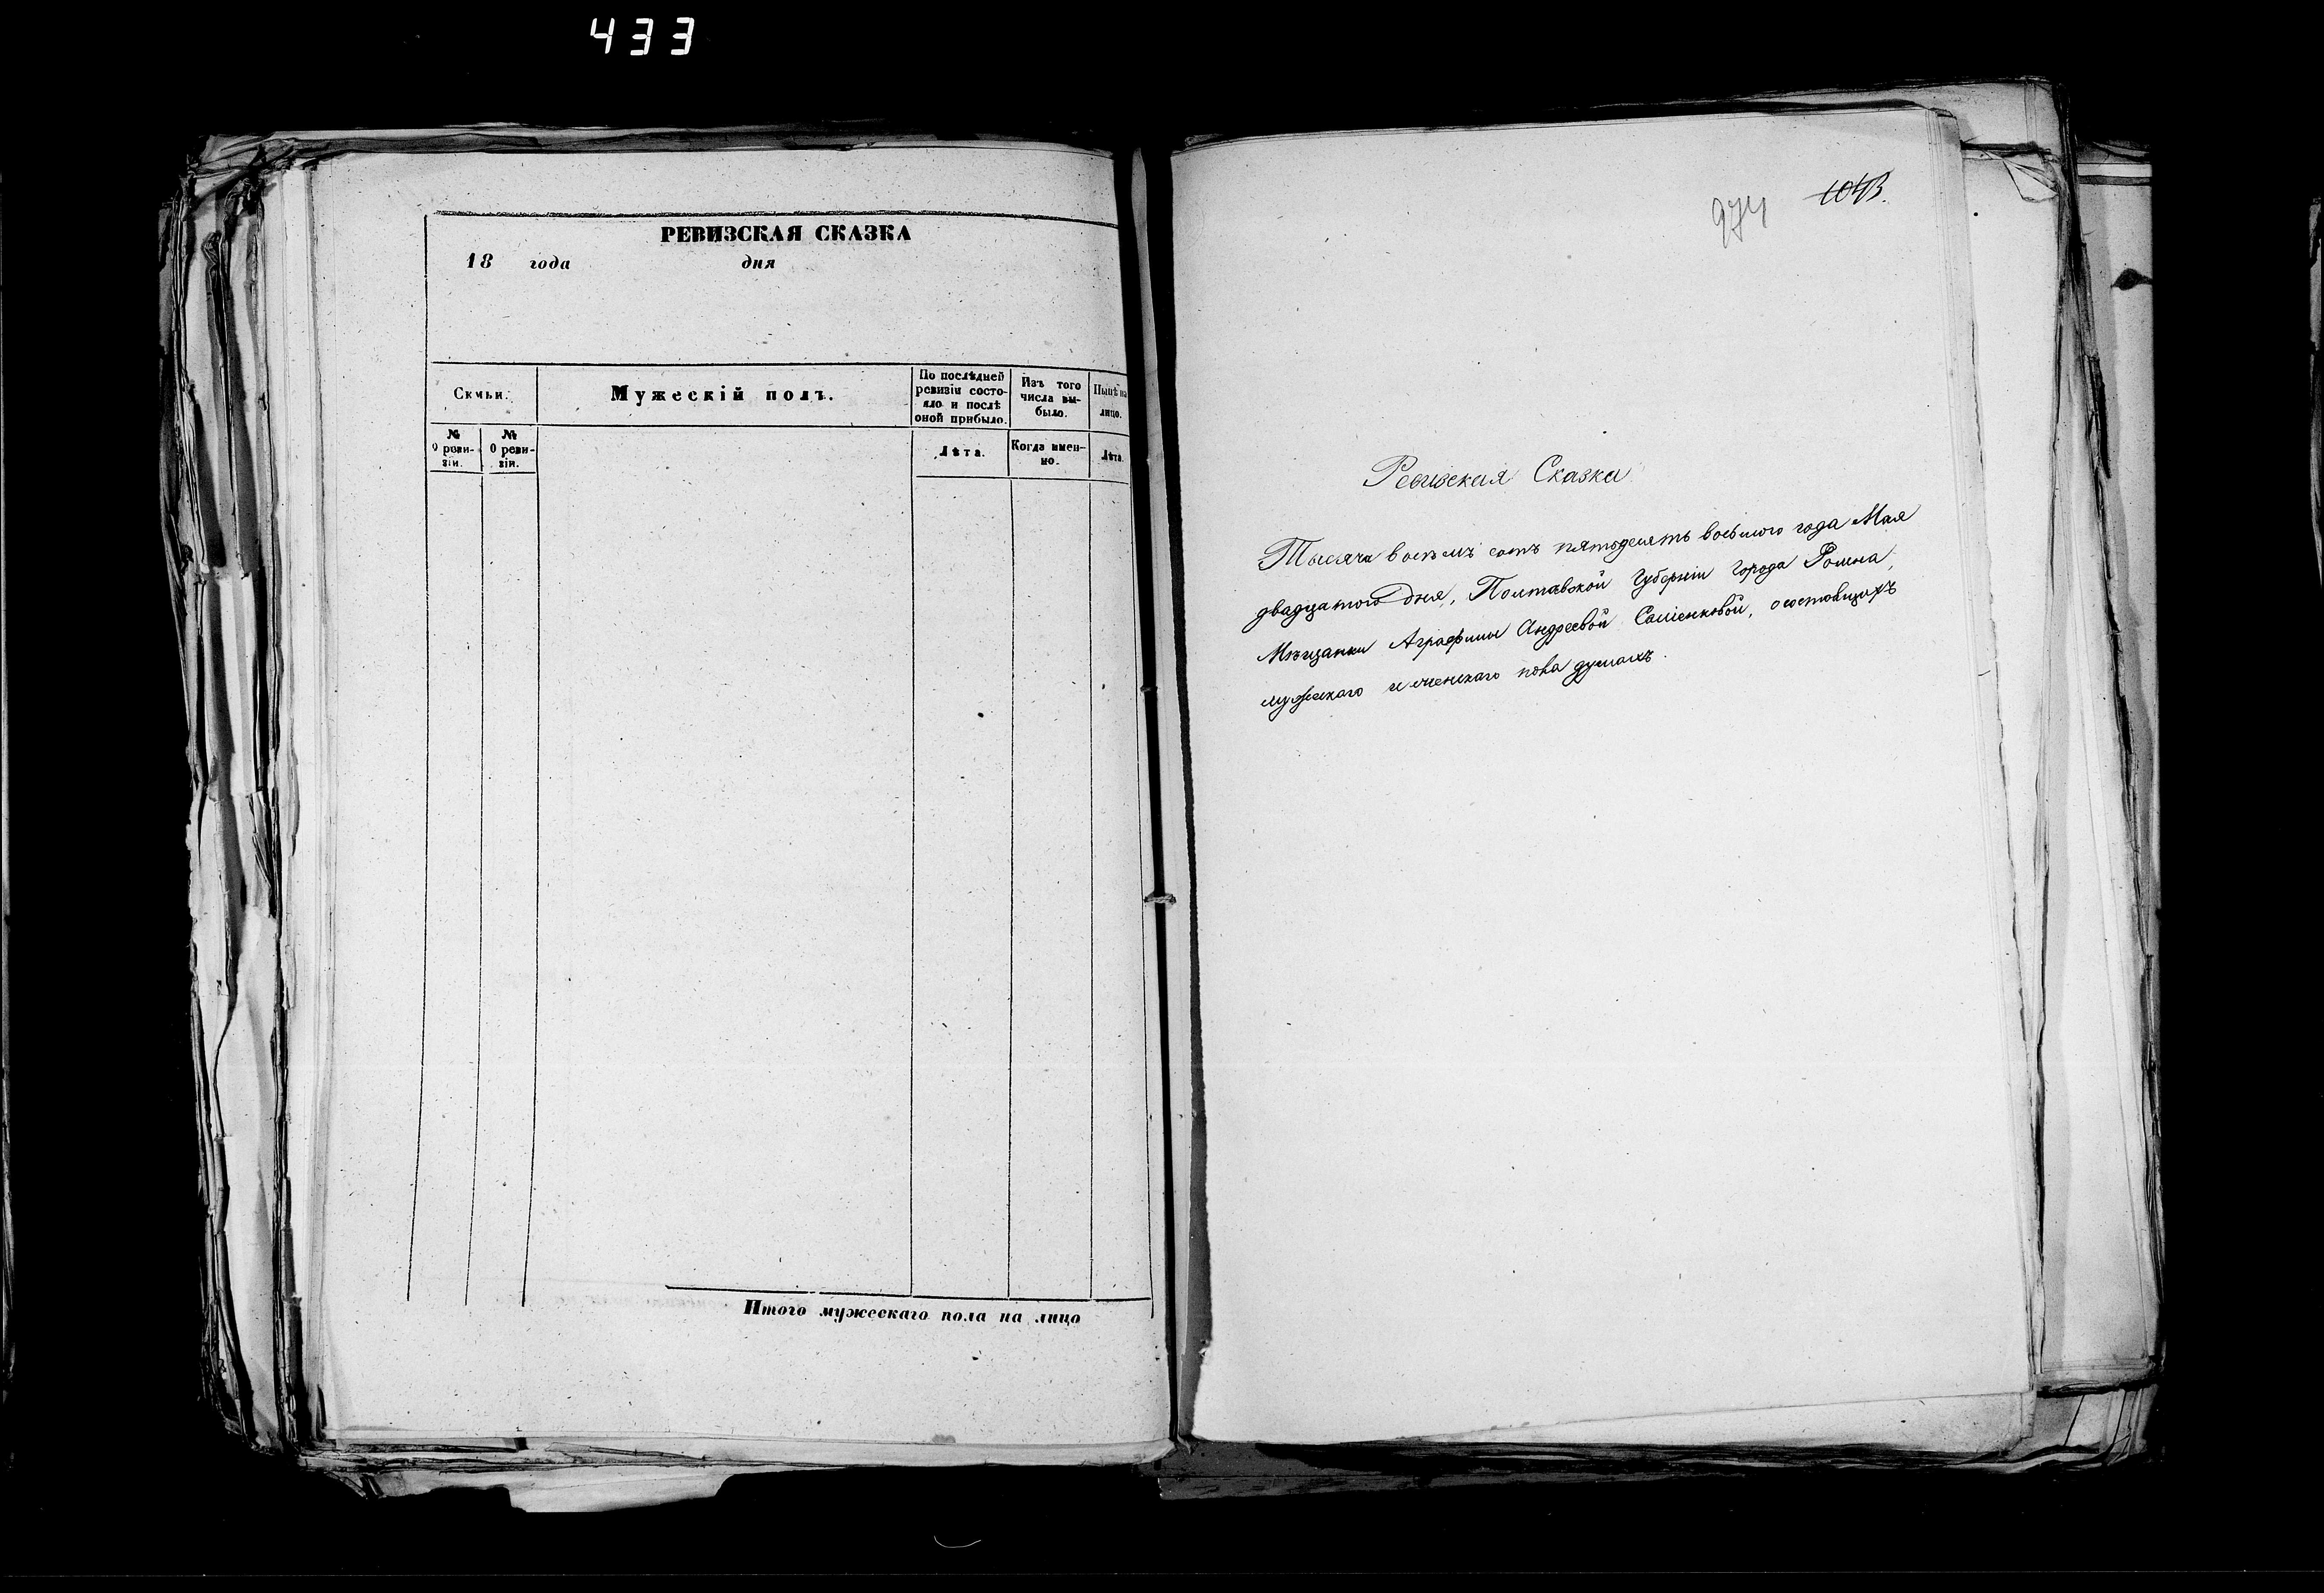 433
РЕВИЗСКАЯ СКАЗКА
18 года дня
Семьи.
Мужескій полъ.
По послѣдней ревизіи состояло и послѣ оной прибыло.
Изъ того числа выбыло.
Нынѣ на лицо.
№ 0 ревизіи.
№ 0 ревизіи.
Лѣта.
Когда именно.
Лѣта.
Итого мужескаго пола на лицо
974 1043.
Ревизская Сказка
Тысяча восемъ сотъ пятьдесятъ восьмого года Мая
двадцатого дня, Полтавской Губерніи города Ромна,
Мѣщанки Аграфины Андреевой, о состоящихъ
мужескаго и женскаго пола душахъ.